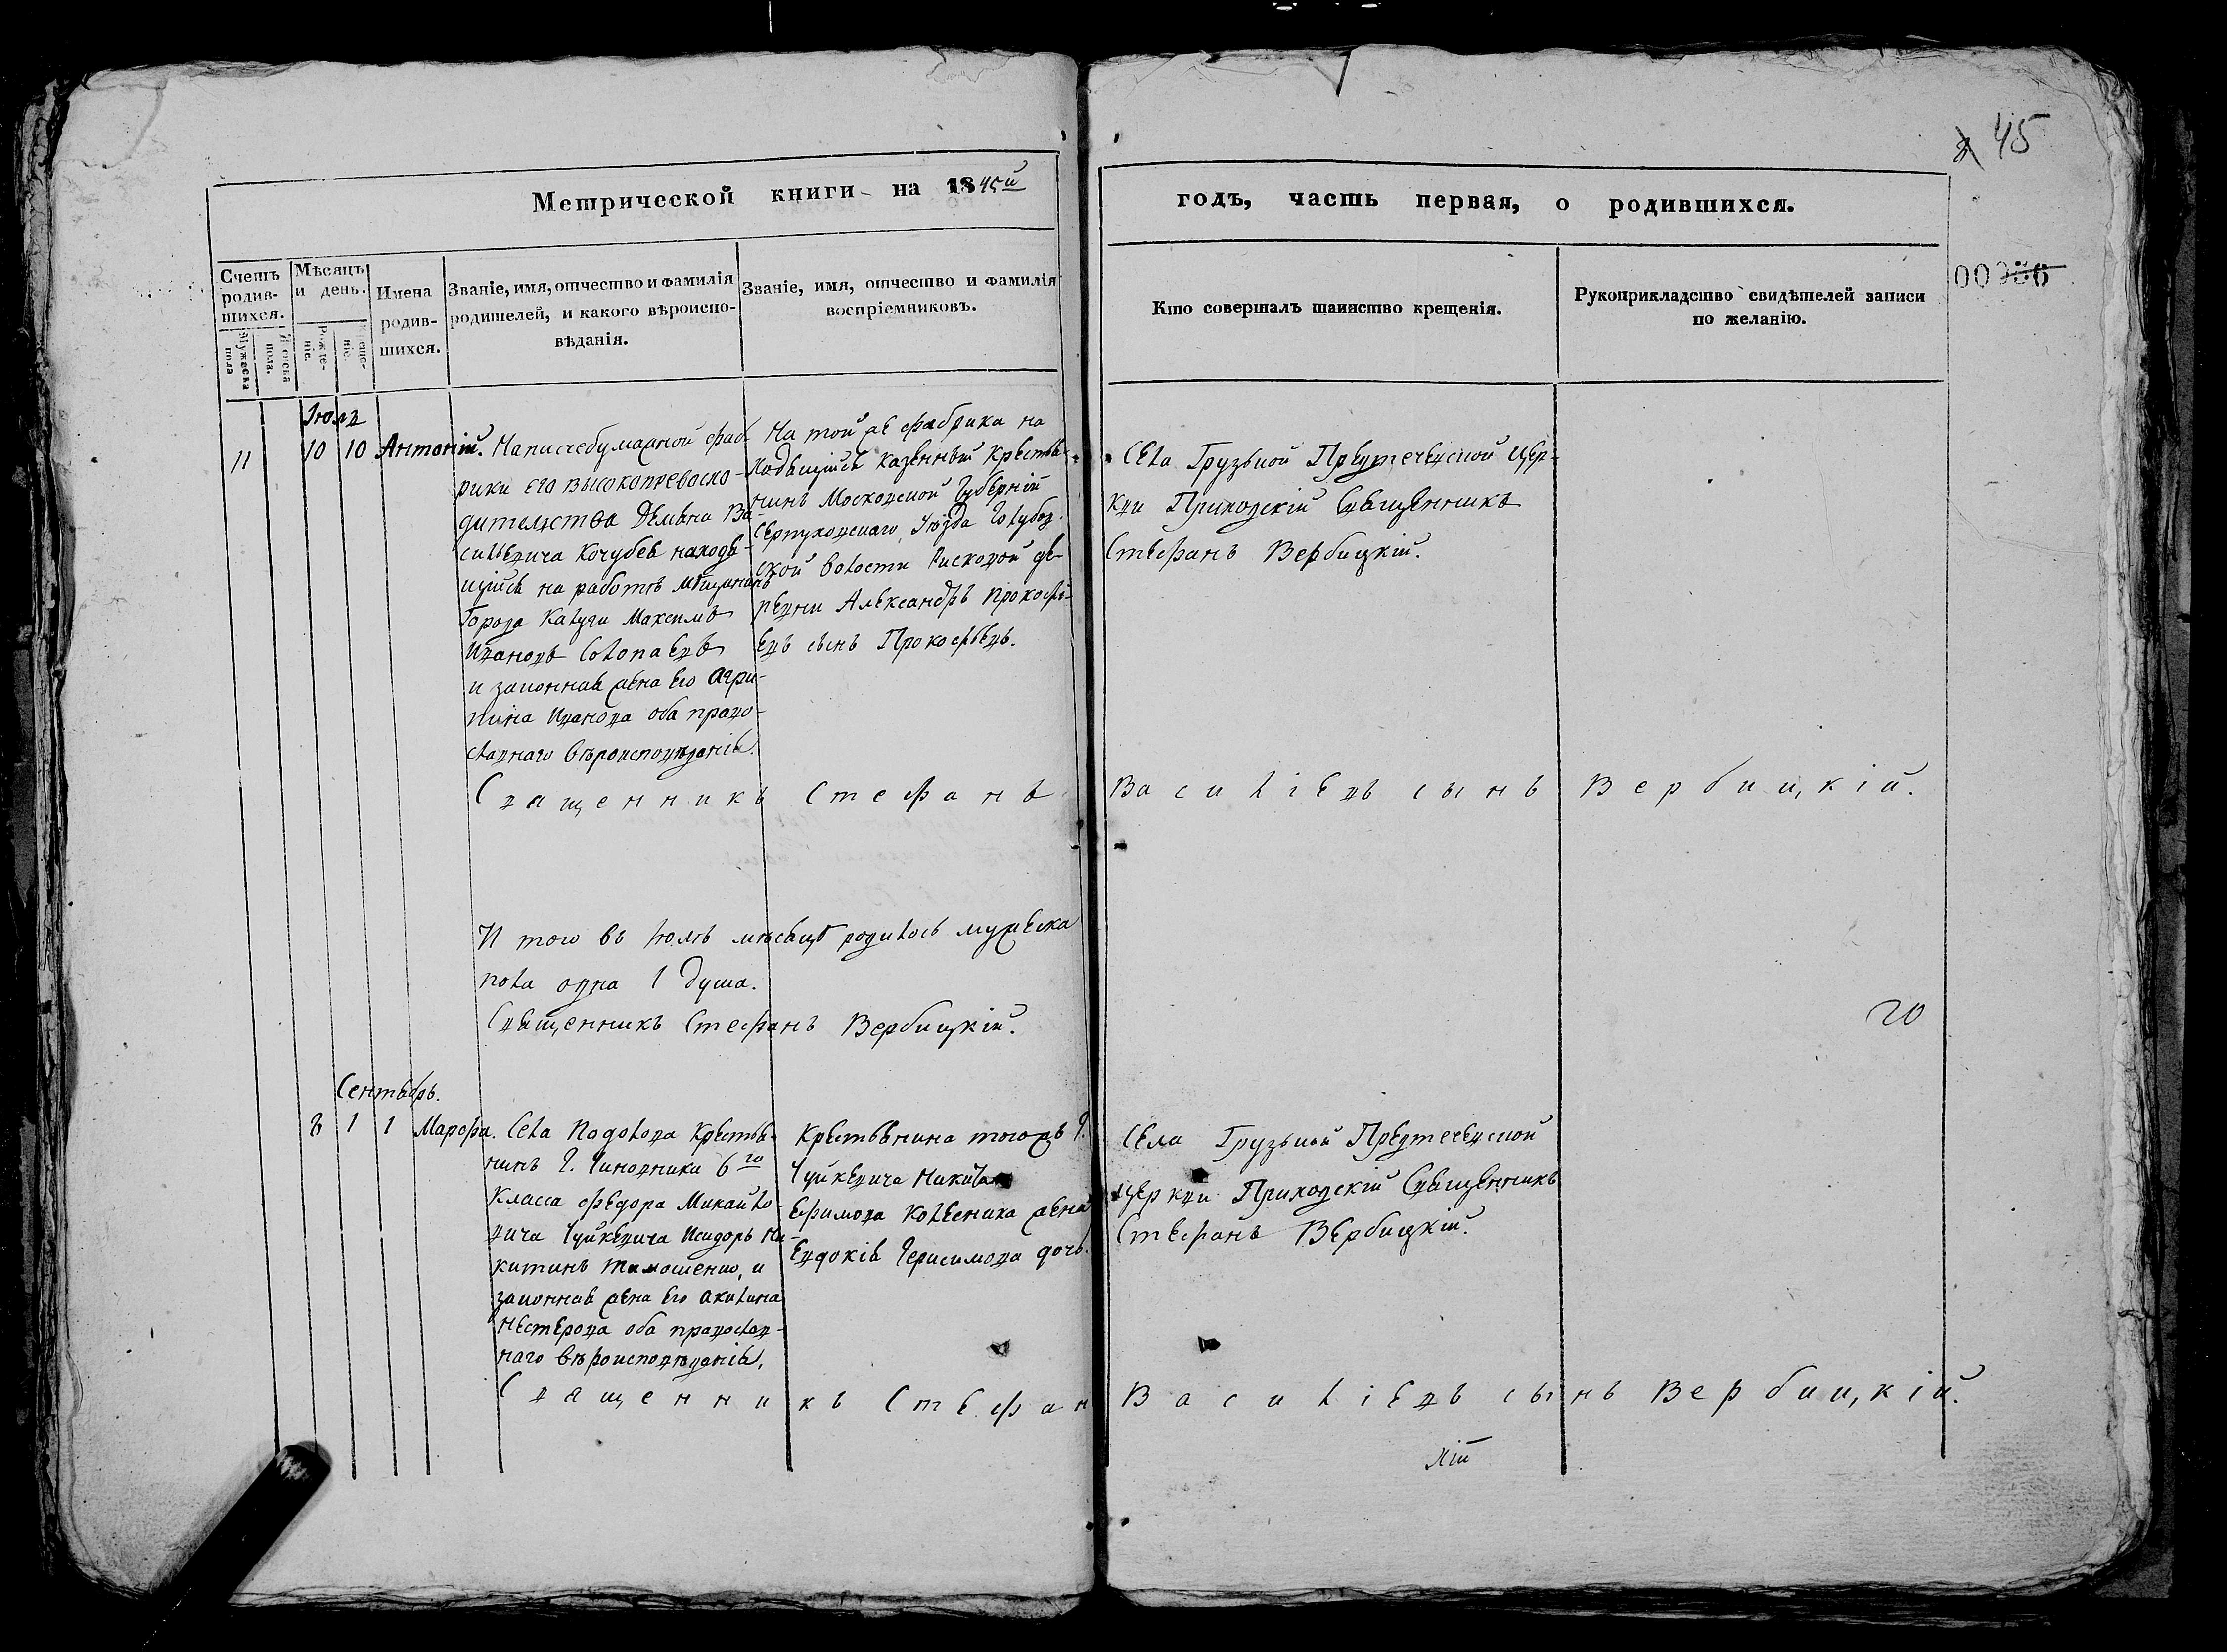 45
Метрической книги на 1845й
годъ, часть первая, о родившихся.
Счетъ родив-шихся.
Мужеска пола
Женска пола.
Мѣсяцъ и день.
Рожде-ніе.
Креще-ніе.
Имена родив-шихся.
Званіе, имя, отчество и фамилія родителей, и какого вѣроиспо-вѣданія.
Званіе, имя, отчество и фамилія воспріемниковъ.
Кто совершалъ таинство крещенія.
Рукоприкладство свидѣтелей записи по желанію.
Іюль
11
10
10
Антоній.
На писчебумажной фаб-
рики его высокопревосхо-
дительства Демьяна Ва-
сильевича Кочубея находя-
щійся на работѣ мѣщанинъ
Города Калуги Максимъ
Ивановъ Солопаевъ
и законная жена его Агри-
пина Иванова оба право-
славнаго вѣроисповѣданія.
На той же фабрика на
ходящійся казенный крестья-
нинъ Московской Губерніи
Серпуховскаго Уезда
ской волости де-
ревни Александръ Прокофь-
евъ сынъ Прокофьевъ.
Села Грузской Предтечевской Цер-
кви Приходскій Священникъ
Стефанъ Вербицкій.
Священникъ Стефанъ Василіевъ сынъ Вербицкій.
И того въ Іюлѣ мѣсяцѣ родилось мужеска
пола одна 1 душа.
Священникъ Стефанъ Вербицкій.
20
Сентябрь.
8
1
1
Марфа.
Села Подолова Крестья-
нинъ Г. Чиновника 6го
класса Федора Михайло-
вича Чуйкевича Исидоръ Ни-
китинъ Тимошенко, и
законная жена его Акилина
Нестерова оба православ-
наго вѣроисповѣданія.
Крестьянина тогожъ Г.
Чуйкевича Никиты
Ефимова Колесника жена
Евдокія Герисимова дочь.
Села Грузской Предтечевской
Церкви Приходскій Священникъ
Стефанъ Вербицкій.
Священникъ Стефан Василіевъ сынъ Вербицкій.